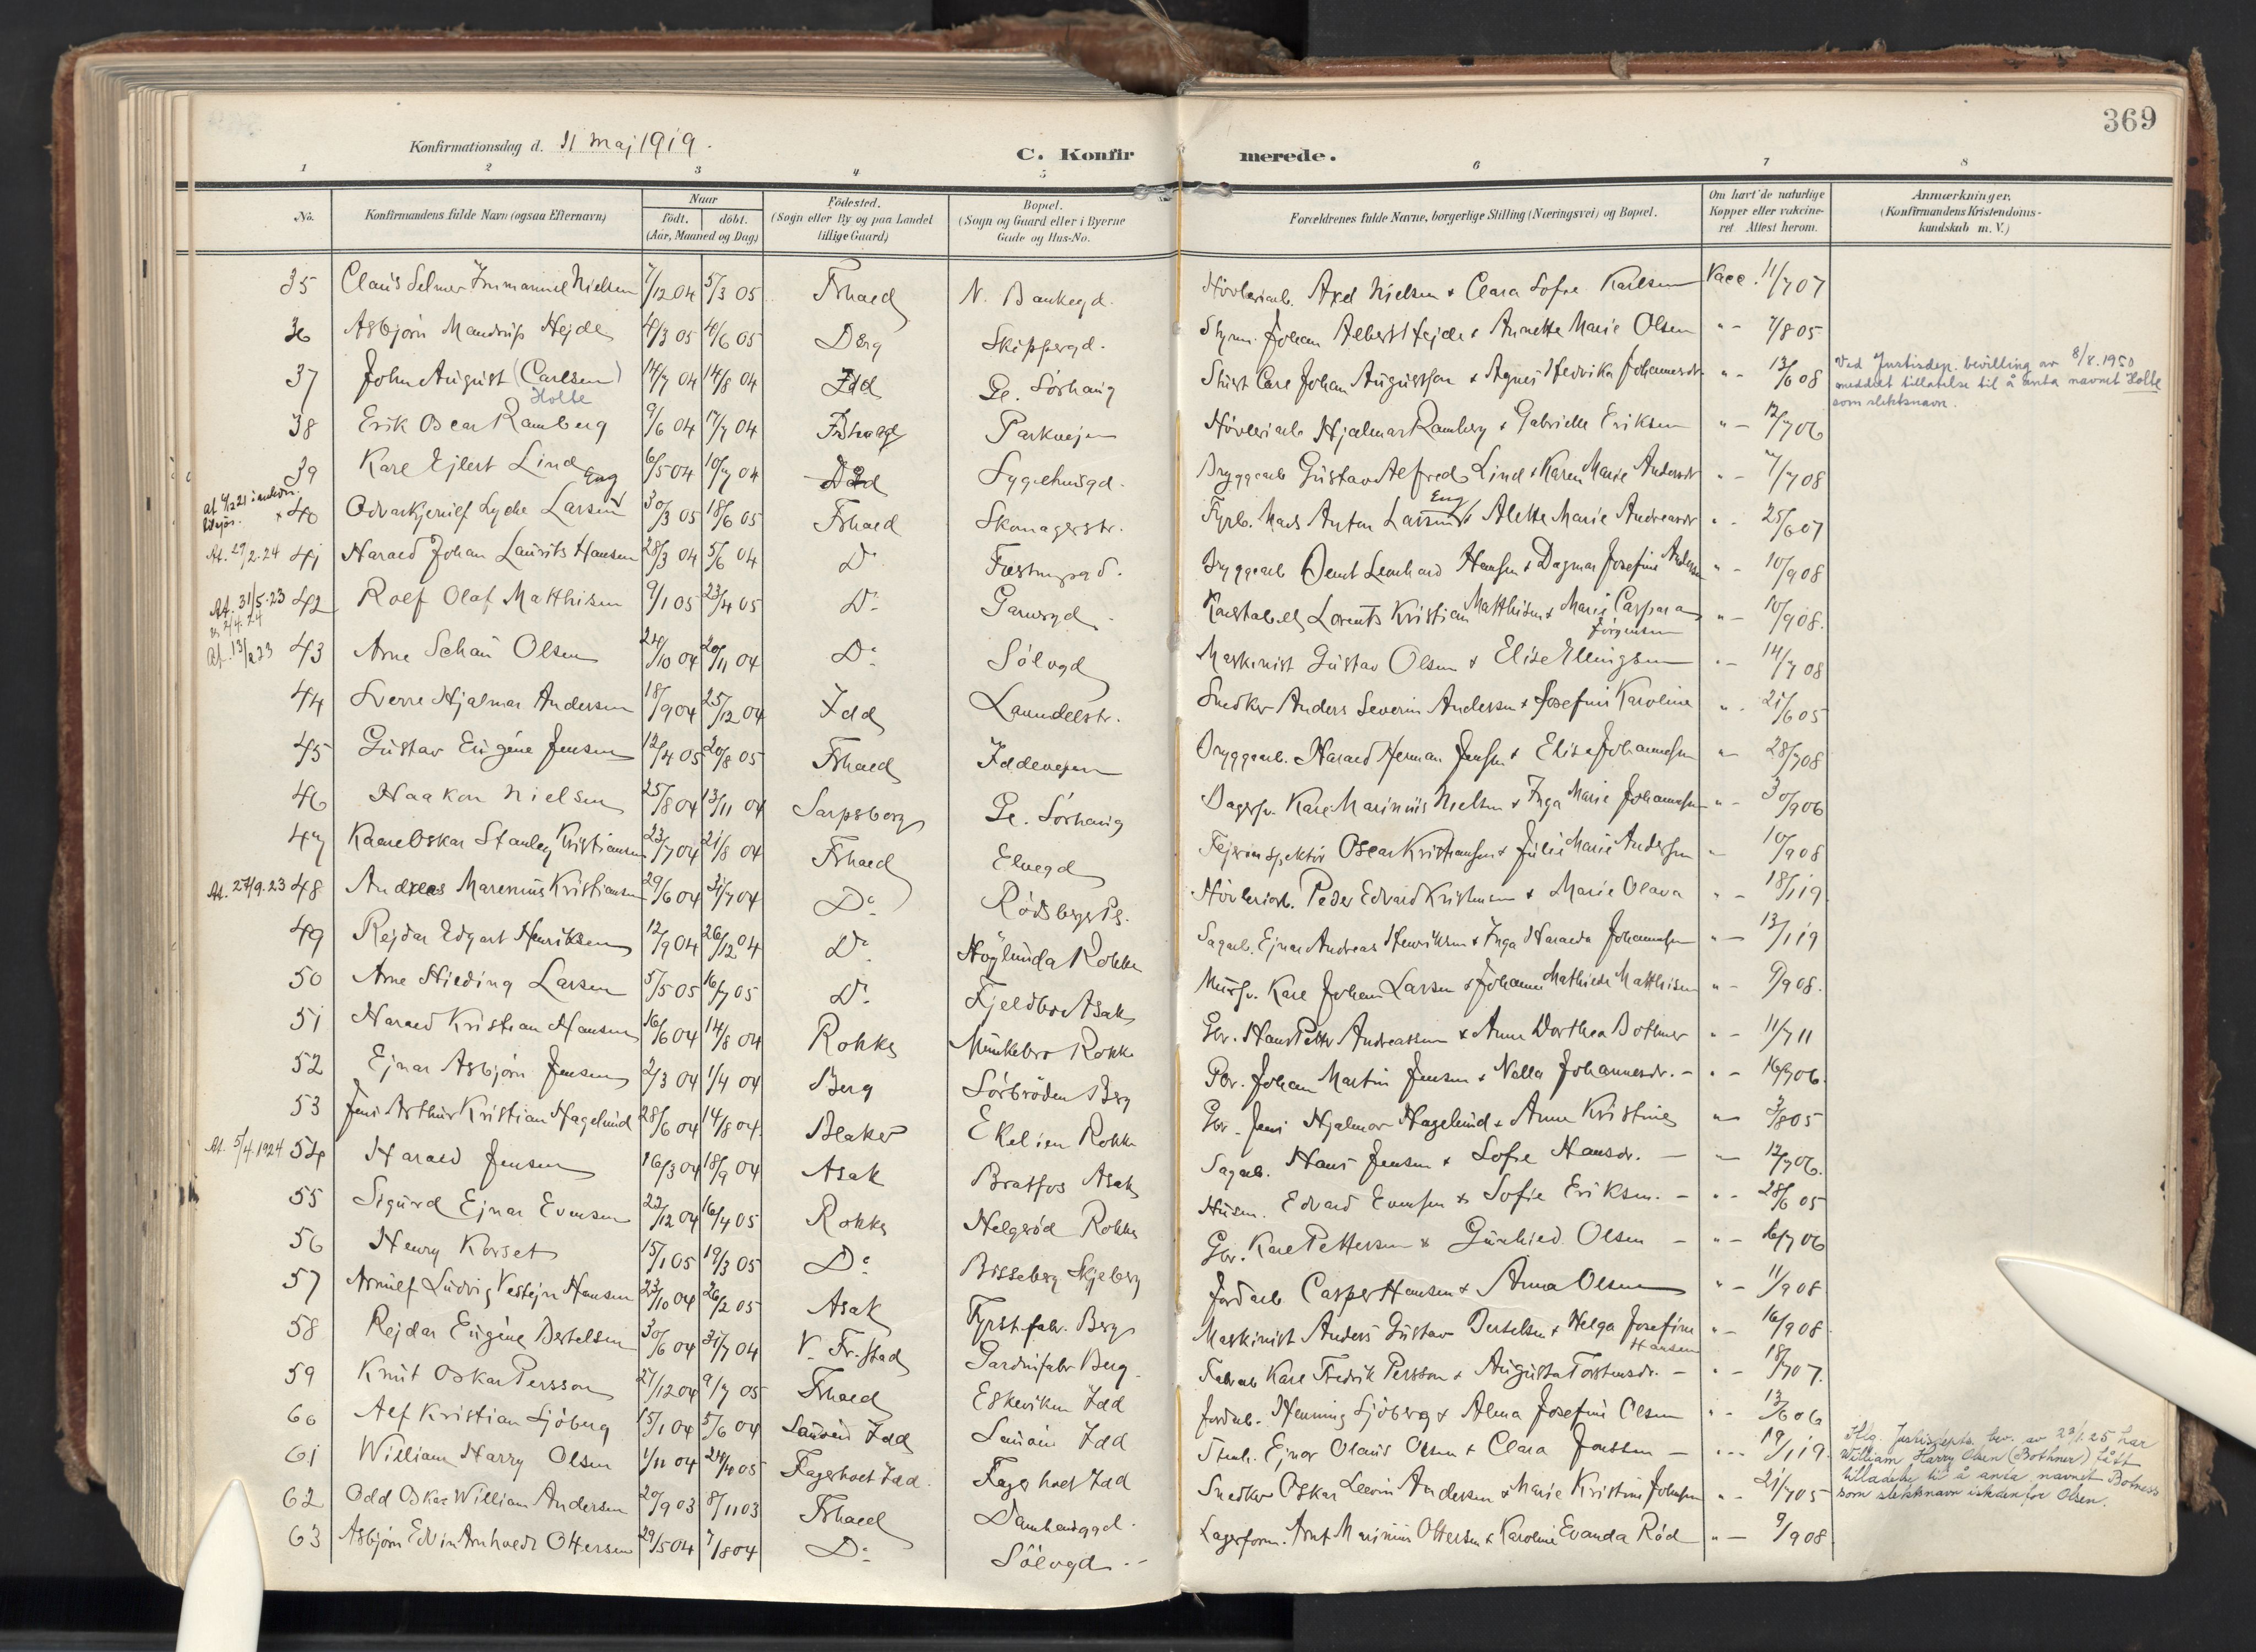 369
Konfirmationsdag d. 11 maj 1919.
C. Konfirmerede.
1 2 3 4 5 6 7 8
No. Konfirmandens fulde Navn (ogsaa Efternavn) Naar født. døbt. (Aar, Maaned og Dag) Fødested. (Sogn eller By og paa Landet tillige Gaard) Bopæl. (Sogn og Gaard eller i Byerne Gade og Hus-No. Forældrenes fulde Navne, borgerlige Stilling (Næringsvei) og Bopæl. Om havt de naturlige Kopper eller vakcineret Attest herom. Anmærkninger. (Konfirmandens Kristendomskundskab m. V.)
35 Claus Selmer Immanuel Nielsen 7/12 04 5/3 05 Frhald N. Bankegd. Høvleriarb. Axel Nielsen & Clara Sofie Karlsen Vacc. 11/7 07
36 Asbjørn Mandrup Hejde 4/3 05 4/6 05 Berg Skippergd. Styrm. Johan Albert Hejde & Annette Marie Olsen " - 7/8 05
37 John August (Carlsen) Holte 14/7 04 14/8 04 Idd Gl. Sørhaug Carl Johan Augustson & Agnes Hedvika Johannesdr " - 13/6 08 Ved Justisdep. bevilling av 8/8.1950 meddelt tillatelse til å anta navnet Holte som slektsnavn.
38 Erik Oscar Ramberg 9/6 04 17/7 04 Frhald Parkvejen Høvleriarb Hjalmar Ramberg & Gabrielle Eriksen " - 12/7 06
39 Karl Ejlert Lind 6/5 04 10/7 04 Sygehusgd. Bryggearb Gustav Alfred Lind & Karen Marie Andersdr " - 7/7 08
x 40 Odvar Lyche Larsen Eng 30/3 05 18/6 05 Frhald Skomagerstr. Fyrb. Mads Anton Larsen Eng & Alette Marie Andreasdr " - 25/6 07
At. 29/2.24 41 Harald Johan Laurits Hansen 28/3 04 5/6 04 Do Fæstningsgd. Bryggearb Bernt Leonhard Hansen & Dagmar Josefine Andersen " - 10/9 08
At. 31/5.23 42 Rolf Olaf Matthisen 9/1 05 23/4 05 Do Garvergd. Lorents Kristian Matthisen & Marie Caspara Jørgensen " - 10/9 08.
At. 13/2 23 43 Arne Schau Olsen 24/10 04 20/11 04 Do Sølvgd Maskinist Gustav Olsen & Elise Ellingsen " - 14/7 08
44 Sverre Hjalmar Andersen 18/9 04 25/12 04 Idd Laundelstr. Snedker Anders Severin Andersen & Josefine Karoline " - 21/6 05
45 Gustav Eugéne Jensen 12/4 05 20/8 05 Frhald Iddevejen Bryggearb. Harald Herman Jensen & Elise Johannesen " - 28/7 08
46 Haakon Nielsen 25/8 04 13/11 04 Sarpsborg Gl. Sørhaug Bagersv. Karl Marinius Nielsen & Inga Marie Johannesen " - 30/9 06
47 Kaare Oskar Stanley Kristiansen 23/7 04 21/8 04 Frhald Elvegd Fejerinspektør Oscar Kristiansen & Julie Marie Andersen " - 10/9 08
At. 27/9.23 48 Andreas Marenius Kristiansen 29/6 04 31/7 04 Do Rødsberg Pl. Høvleriarb. Peder Edvard Kristiansen & Marie Olava " - 18/1 19
49 Rejdar Edgart Henriksen 12/9 04 26/12 04 Do Høglunda Rokke Sagarb. Ejnar Andreas Henriksen & Inga Haralda Johannesen " - 13/1 19
50 Arne Hilding Larsen 5/5 05 16/7 05 Do Fjeldbo Asak Mursv. Karl Johan Larsen & Johanne Mathilde Matthisen " - 9/9 08.
51 Harald Kristian Hansen 16/6 04 14/8 04 Rokke Munkebro Rokke Gbr. Hans Petter Andreassen & Anne Dorthea Bothner " - 11/7 11
52 Ejnar Asbjørn Jensen 2/3 04 1/4 04 Berg Sørbrøden Berg Johan Martin Jensen & Nella Johannesdr. - " - 16/7 06.
53 Jens Arthur Kristian Hagelund 28/6 04 14/8 04. Blaker Ekelien Rokke Gbr. Jens Hjalmar Hagelund & Anne Kristine " - 3/8 05
At. 5/4.1924 54 Harald Jensen 16/3 04 18/9 04 Asak Bratfos Asak Sagarb. Hans Jensen & Sofie Hansdr. - " - 12/7 06.
55 Sigurd Ejnar Evensen 22/12 04 16/4 05 Rokke Helgerød Rokke Husm. Edvard Evensen & Sofie Eriksen. - " - 28/6 05
56 Henry Korset 15/1 05 19/3 05 Do Bisseberg Skjeberg Gbr. Karl Pettersen & Gunhild Olsen - " - 16/7 06
57 Arnulf Ludvig Vestejn Hansen 23/10 04 26/2 05 Asak Fyrst.fabr. Berg Jordarb Casper Hansen & Anna Olsen " - 11/9 08
58 Rejdar Eugéne Bertelsen 30/6 04 31/7 04 V. Fr.stad Gardinfabr Berg Maskinist Anders Gustav Bertelsen & Helga Josefine Hansen " - 16/9 08
59 Knut Oskar Persson 27/12 04 9/7 05 Frhald Eskeviken Idd Fabrarb Karl Fredrik Persson & Augusta Torstensdr. - " - 18/7 07.
60 Alf Kristian Sjöberg 15/1 04 5/6 04 Sauøen Idd Sauøen Idd Jordarb. Henning Sjöberg & Alma Josefine Olsen " - 13/6 06
61 William Harry Olsen 1/11 04 24/4 05 Fagerholt Idd. Fagerholt Idd Stenh. Ejnar Olaus Olsen & Clara Josten - " - 19/1 19. Iflg. Justisdepts. bev. av 22/1.25 har William Harry Olsen (Bothner) fått tilladelse til å anta navnet Botness som slektsnavn istedenfor Olsen.
62 Odd Oskar William Andersen 20/9 03 8/11 03 Frhald Damhauggd. Snedker Oskar Leevin Andersen & Marie Kristine Johnsen " - 21/7 05
63 Asbjørn Edvin Arnholdt Ottersen 29/5 04 7/8 04 Do Sølvgd - Lagerform. Arnt Marinius Ottersen & Karoline Evanda Rød " - 9/9 08